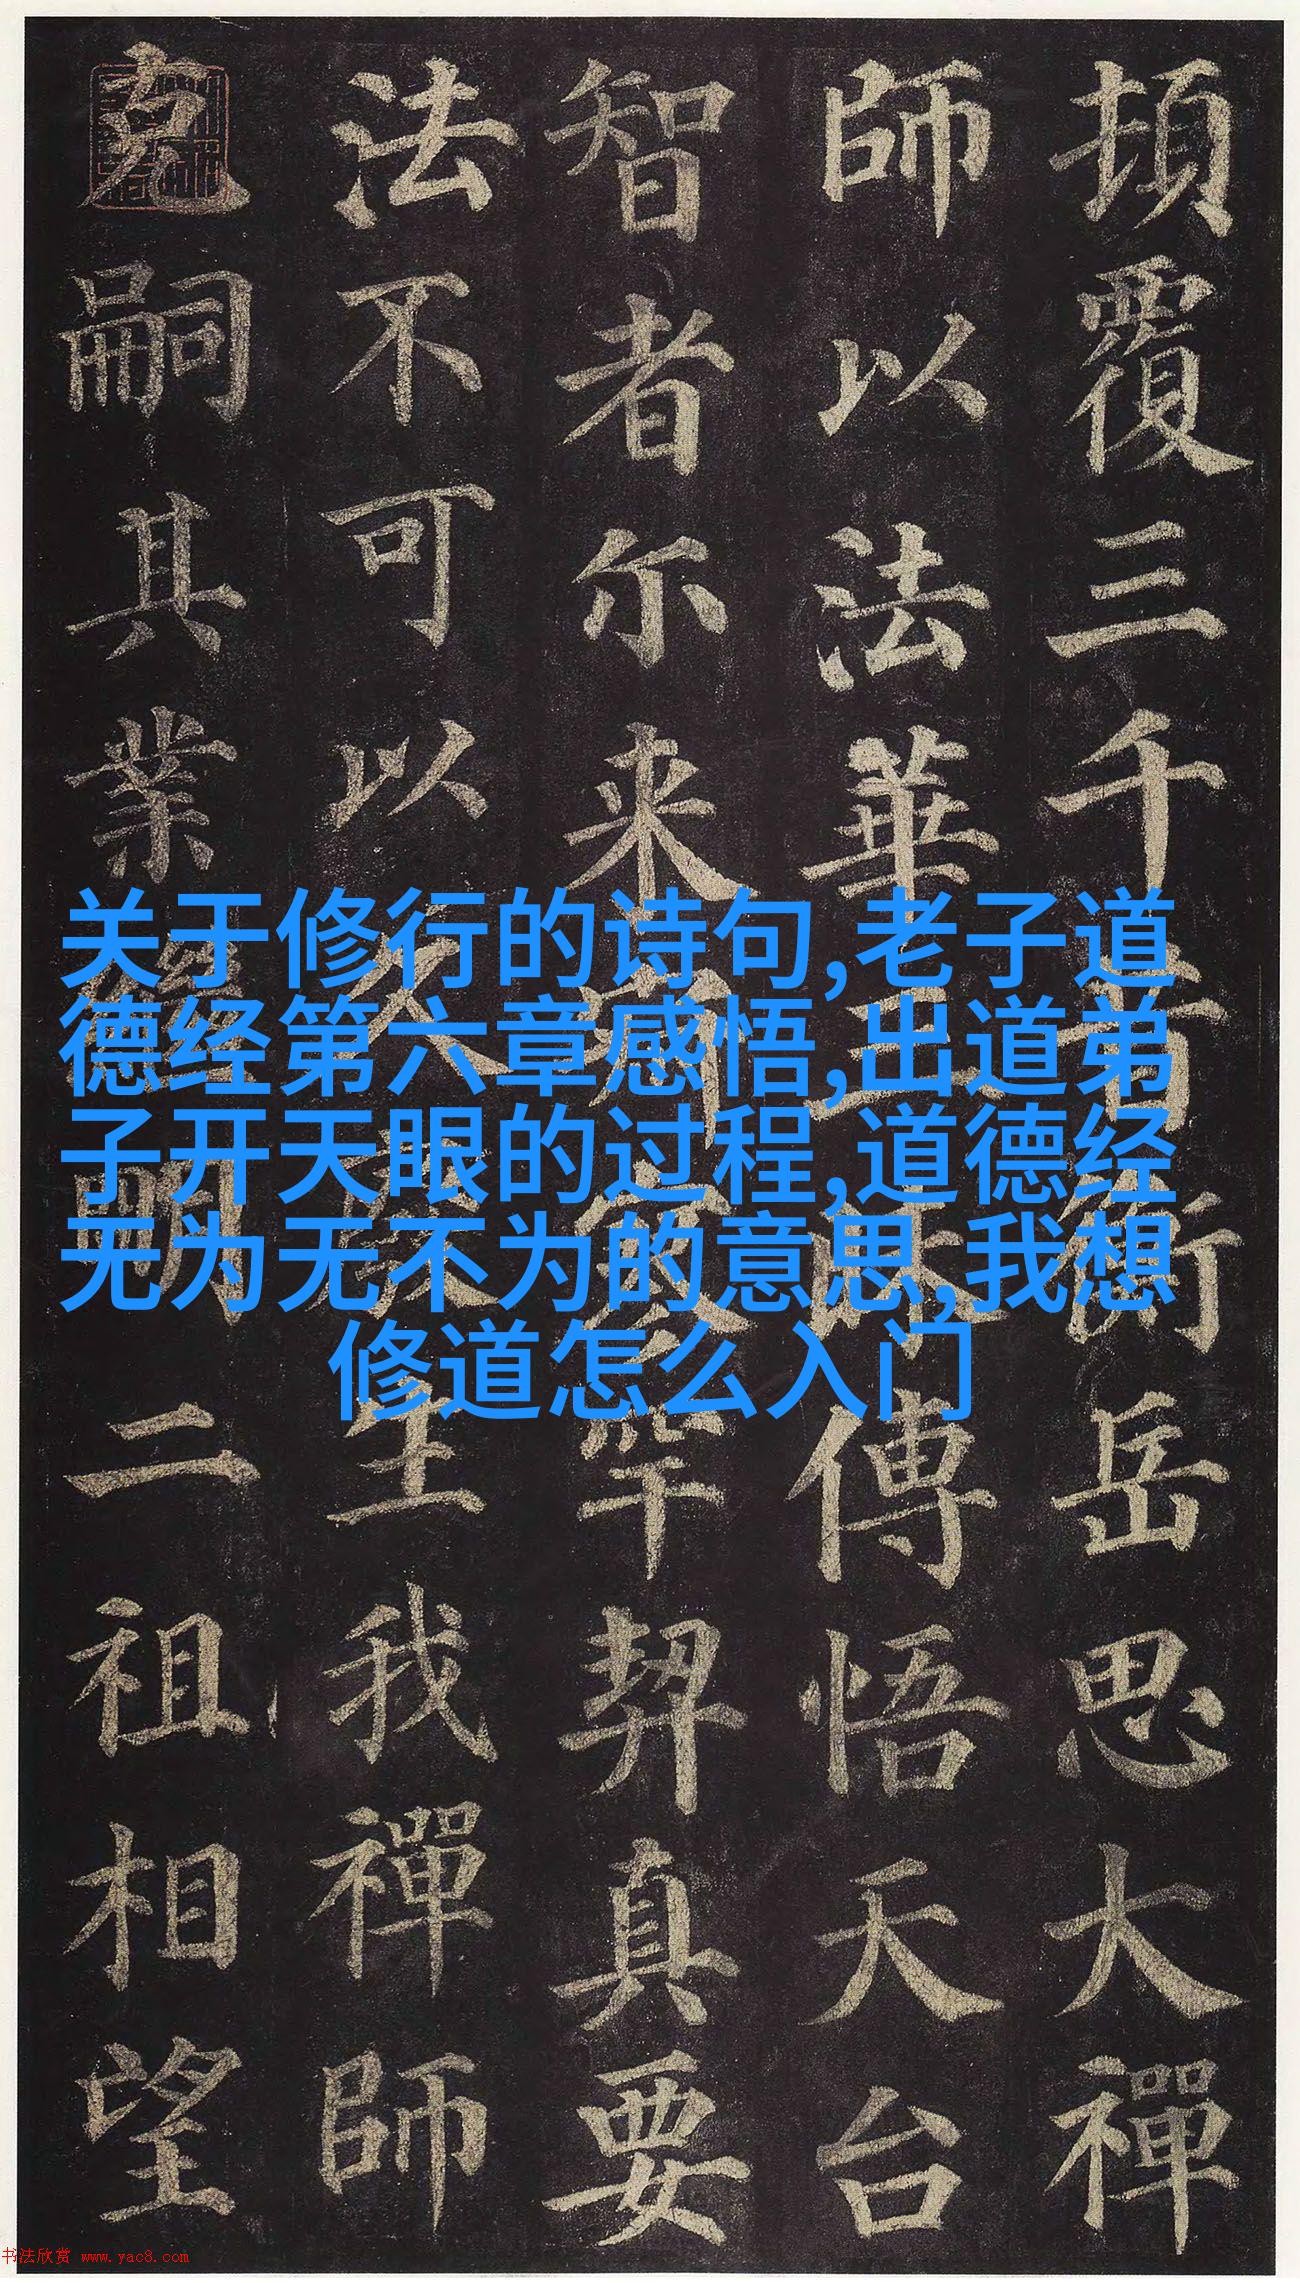 頓覆三千昔衡岳思大禪
師以法華三昧傳悟天台
智者尒来寂寥罕契真要
法不可以久廢生我禪師
克嗣其業継明二祖相望
关于修行的诗句,老子道
德经第六章感悟,出道弟
子开天眼的过程,道德经
无为无不为的意思,我想
修道怎么入门
书法欣赏 www.yac8.com